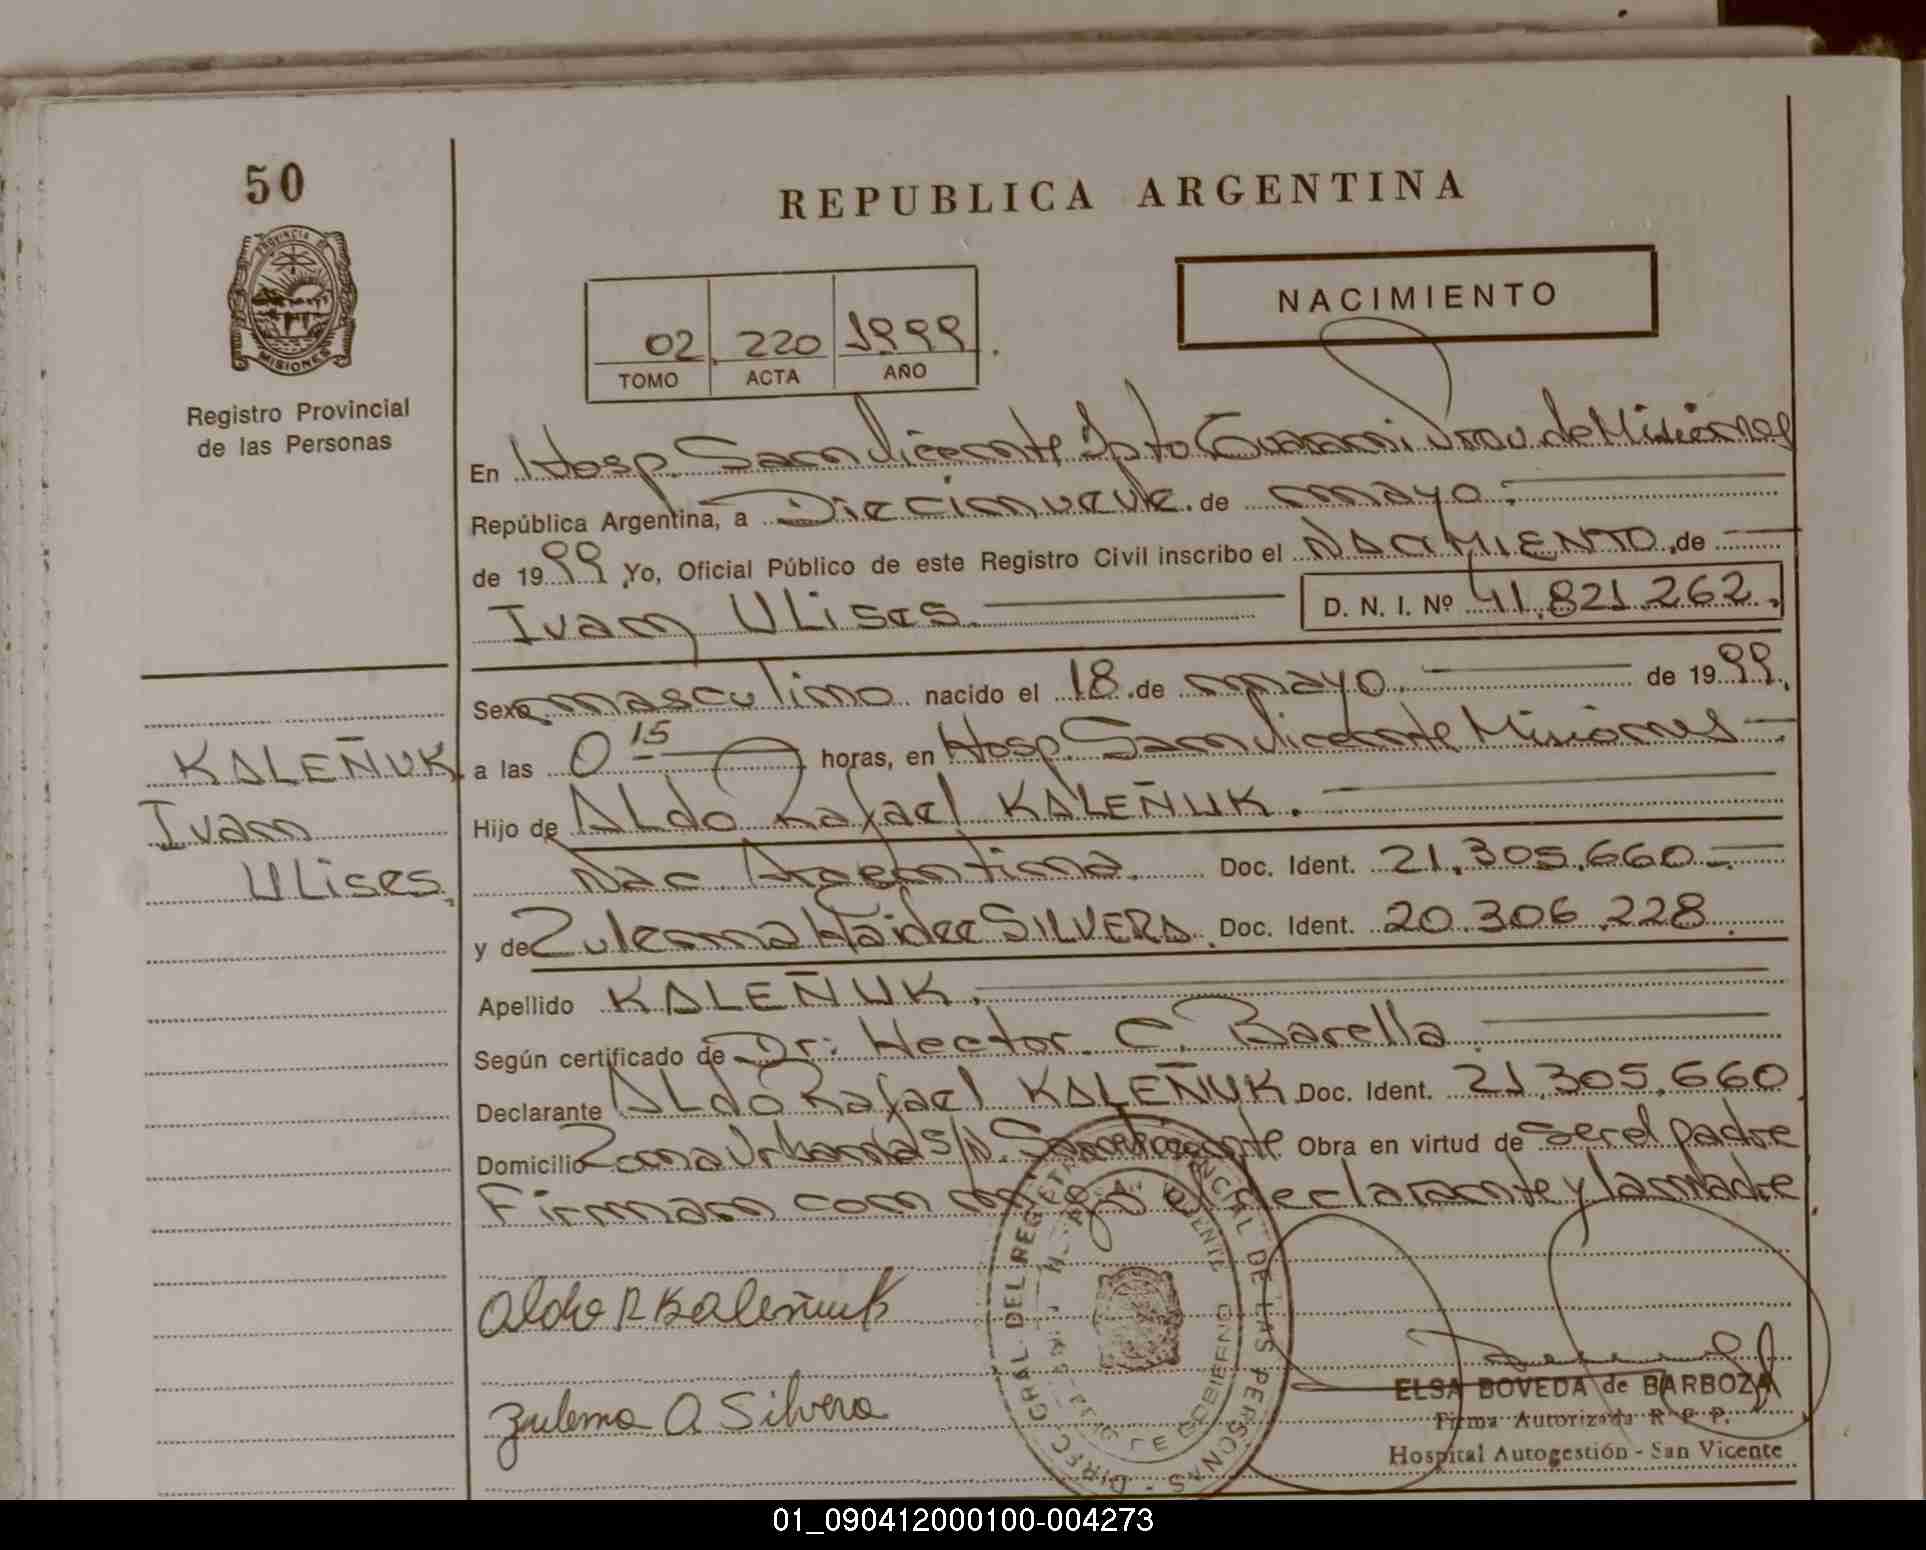 50
REPUBLICA ARGENTINA
PROVINCIA DE
MISIONES
Registro Provincial
de las Personas
02 220 1999
TOMO ACTA AÑO
NACIMIENTO
En Hosp. San Vicente Dpto Guarani Prov. de Misiones
República Argentina, a Diecinueve de mayo.
de 1999 Yo, Oficial Público de este Registro Civil inscribo el NACIMIENTO, de
Ivan ULises. D. N. I. Nº 41.821.262.
Sexo masculino nacido el 18 de mayo. de 1999.
KALEÑUK
Ivan
ULises.
a las 0 15 horas, en Hosp. San Vicente Misiones
Hijo de ALdo Rafael KALEÑUK.
Nac Argentina. Doc. Ident. 21.305.660
y de Zulema Haidee SILVERA. Doc. Ident. 20.306.228
Apellido KALEÑUK.
Según certificado de Dr: Hector C. Barella
Declarante ALdo Rafael KALEÑUK Doc. Ident. 21.305.660
Domicilio Zona Urbana S/N. San Vicente Obra en virtud de ser el padre
Firman con migo el declarante y la madre.
Aldo R Kaleñuk
Zulema A Silvera
DIREC. GRAL DEL REGISTRO PROVINCIAL DE LAS PERSONAS
DE GOBIERNO
ELSA BOVEDA de BARBOZA
Firma Autorizada R. P. P.
Hospital Autogestión - San Vicente
01_090412000100-004273